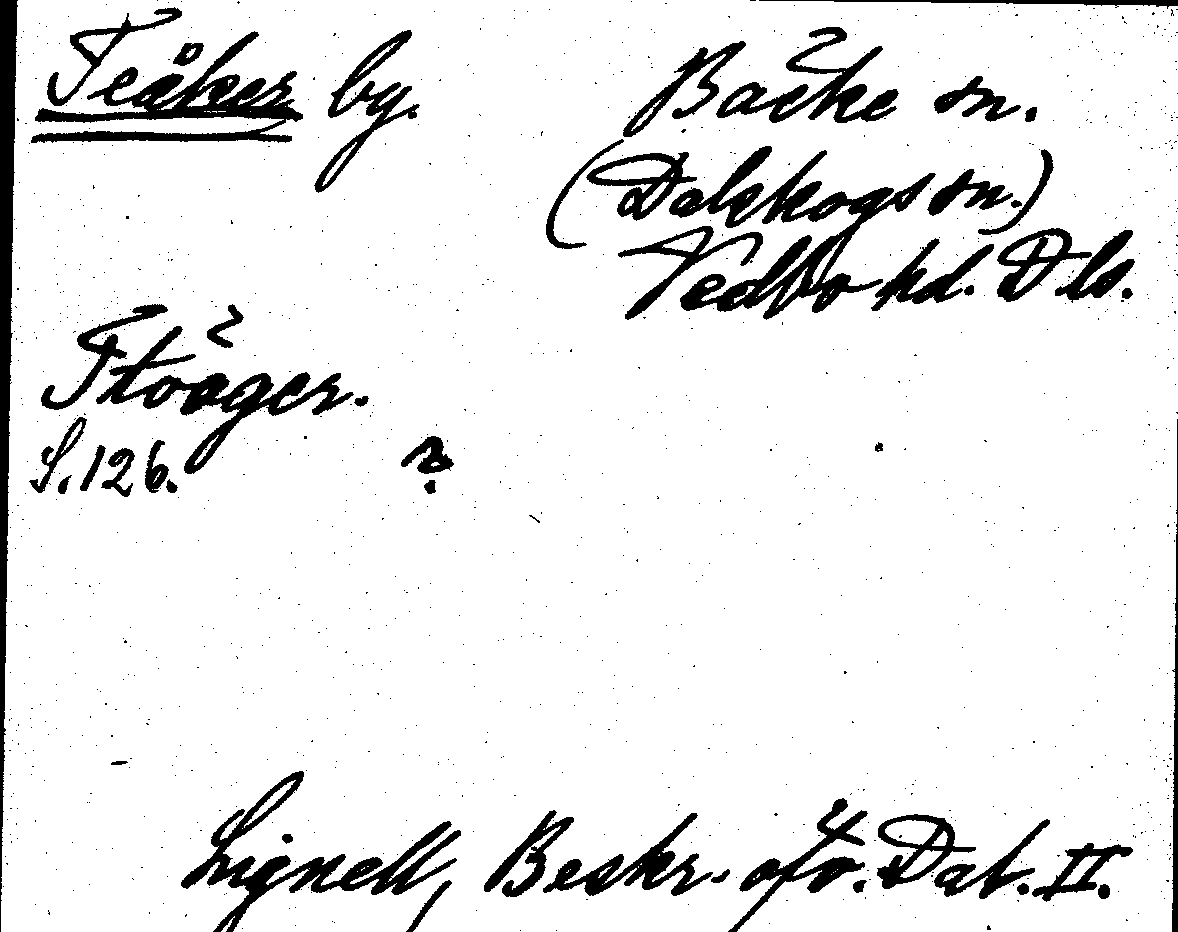 Teåker by. Bäcke sn.
(Dalskogs sn.)
Vedbo hd. Dls.
Ttoäger.
S. 126. ?
Lignell, Beskr. öfv. Dal. II.